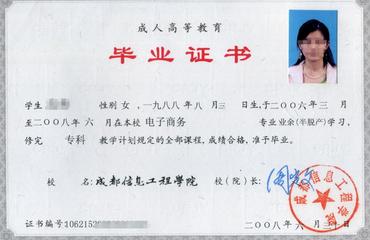 成人高等教育
毕业证书
学生 性别 女，一九八八年八月三日生，于二〇〇六年三月
至二〇〇八年六月在本校 电子商务 专业业余(半脱产)学习，
修完 专科 教学计划规定的全部课程，成绩合格，准予毕业。
校 名：成都信息工程学院 校（院）长：
成都信息工程学院
证书编号：1062152
二〇〇八年六月三十日